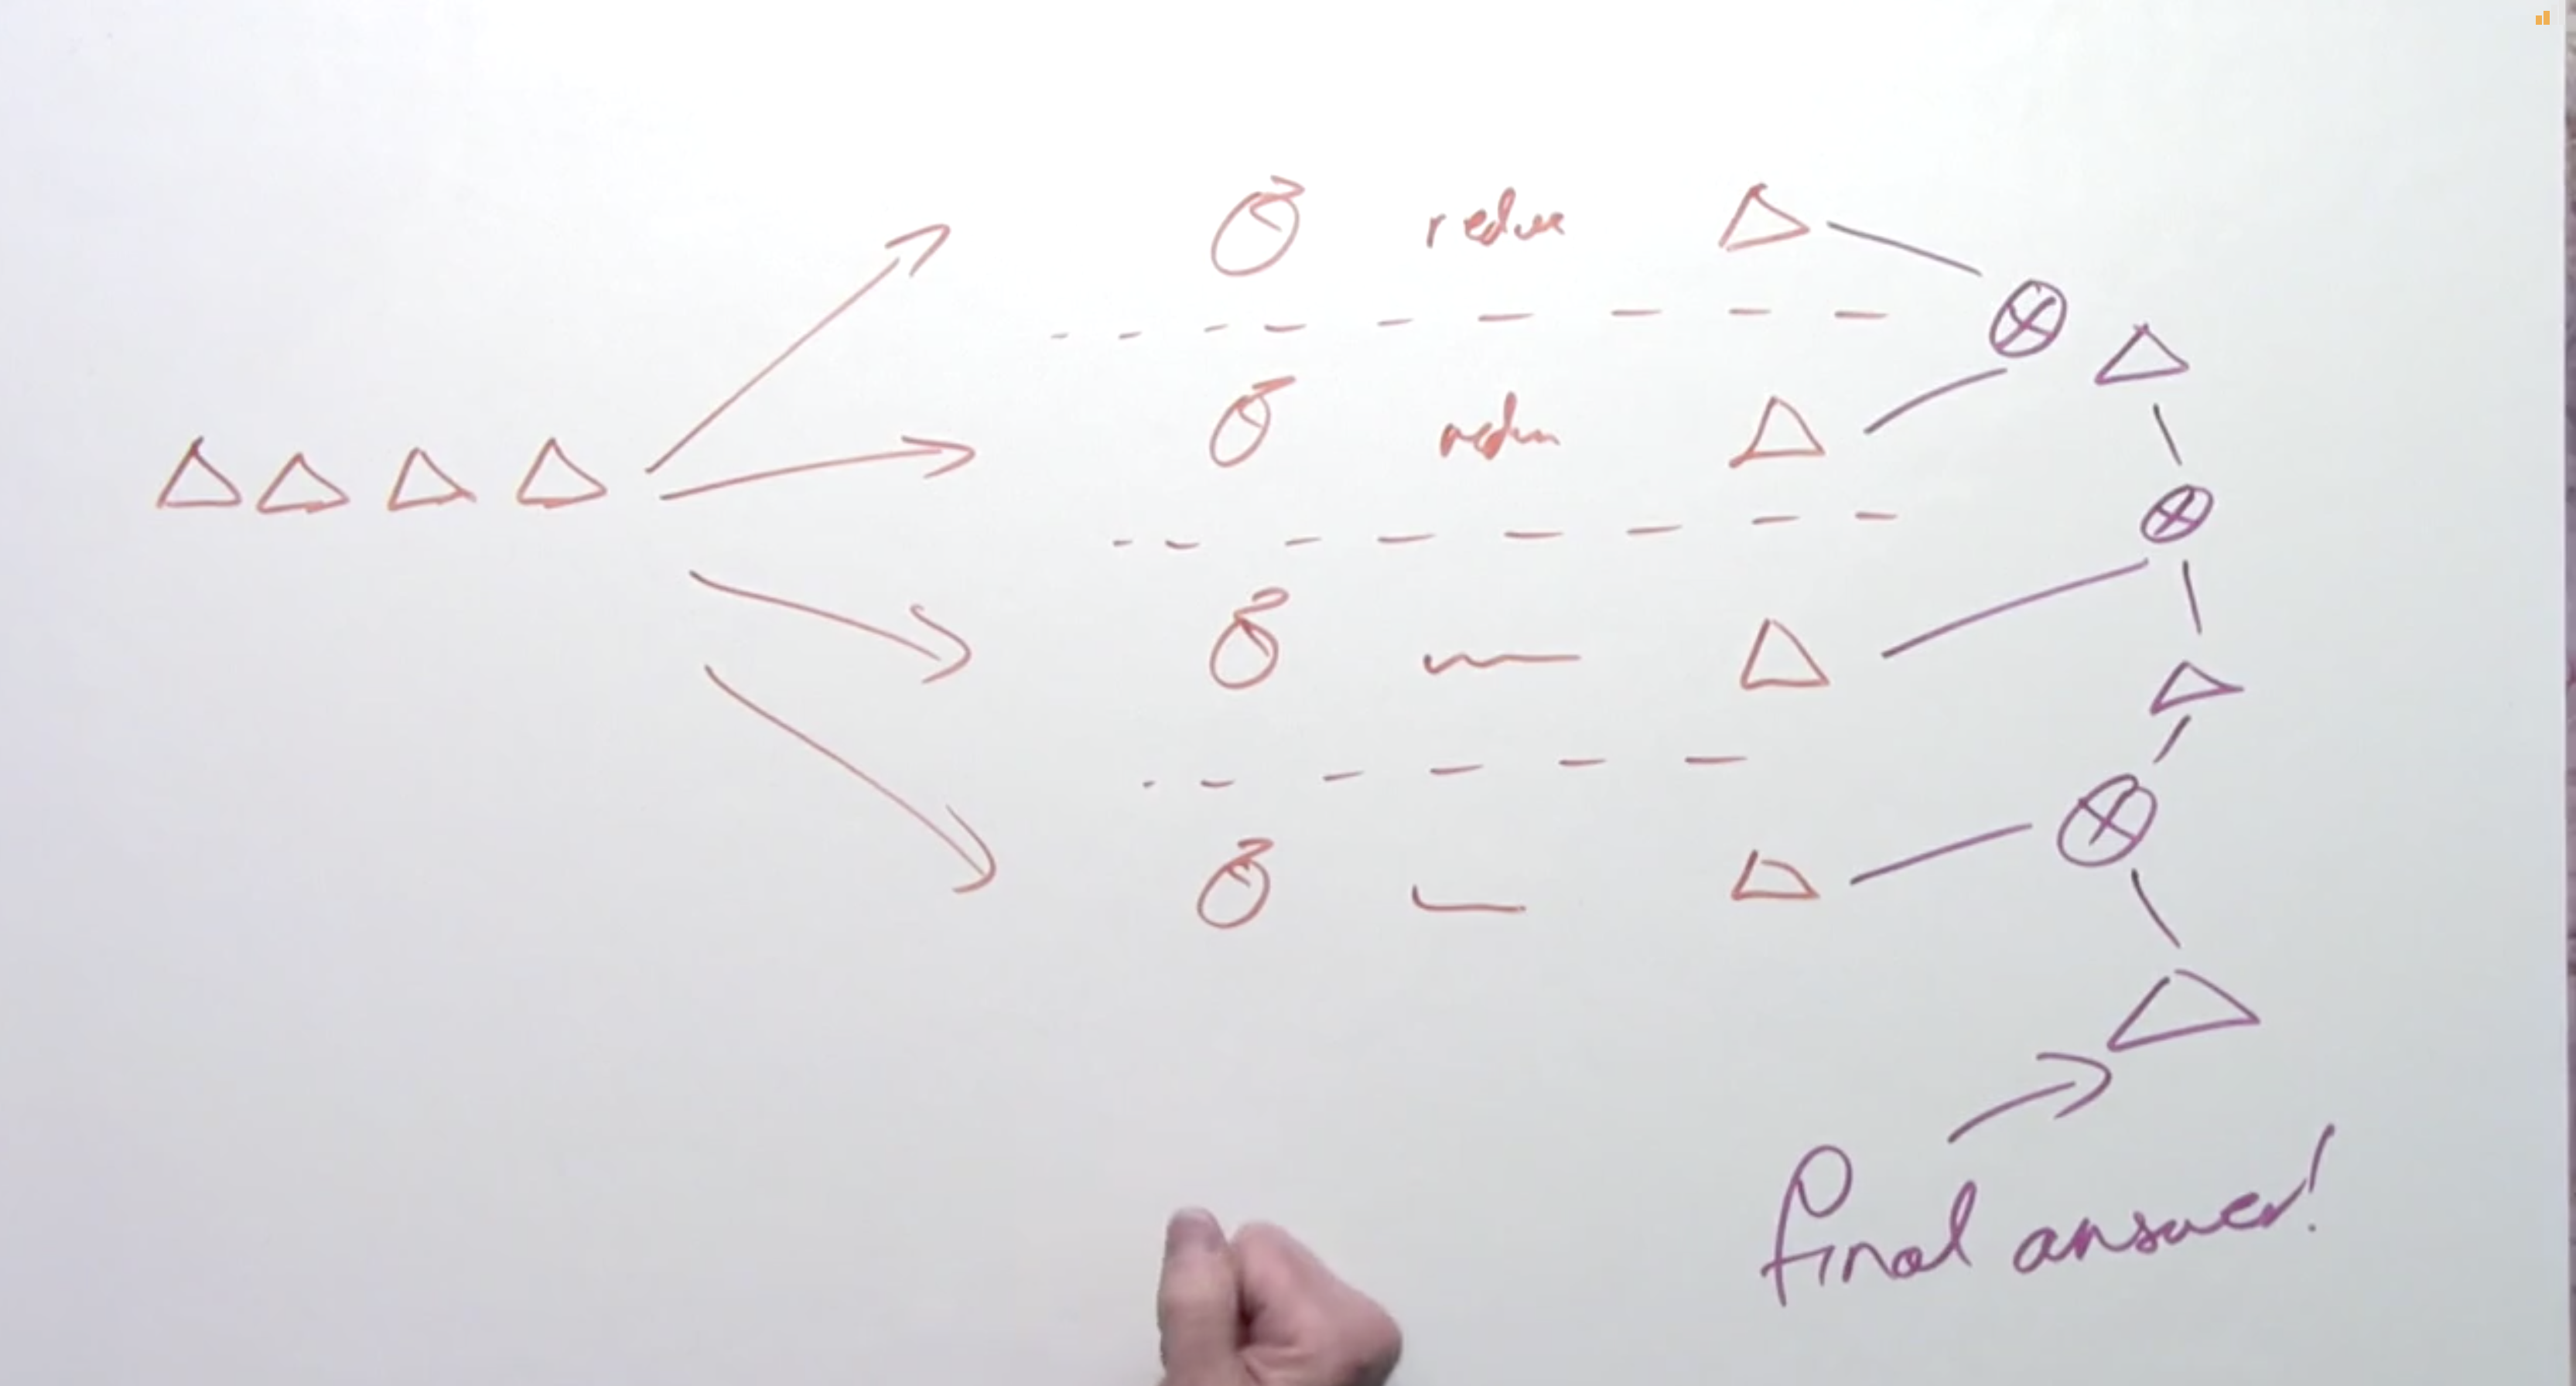 reduce
final answer!